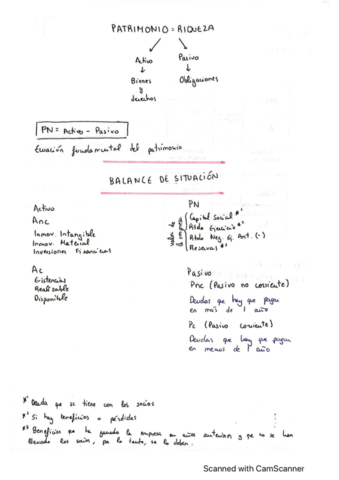 PATRIMONIO = RIQUEZA
Activo Pasivo
Bienes Obligaciones
y
derechos
PN = Activo - Pasivo
Ecuación fundamental del patrimonio
BALANCE DE SITUACIÓN
Activo
Anc
Inmov. Intangible
Inmov. Material
Inversiones Financieras
Ac
Existencias
Realizable
Disponible
PN
valor de la empresa
Capital Social *¹
Rtdo Ejercicio *²
Rtdo Neg. Ej. Ant. (-)
Reservas *³
Pasivo
Pnc (Pasivo no corriente)
Deudas que hay que pagar
en más de 1 año
Pc (Pasivo corriente)
Deudas que hay que pagar
en menos de 1 año
*¹ Deuda que se tiene con los socios
*² Si hay beneficios o pérdidas
*³ Beneficios ha ganado la empresa en años anteriores y que no se han
llevado los socios, por lo tanto, se lo deben.
Scanned with CamScanner